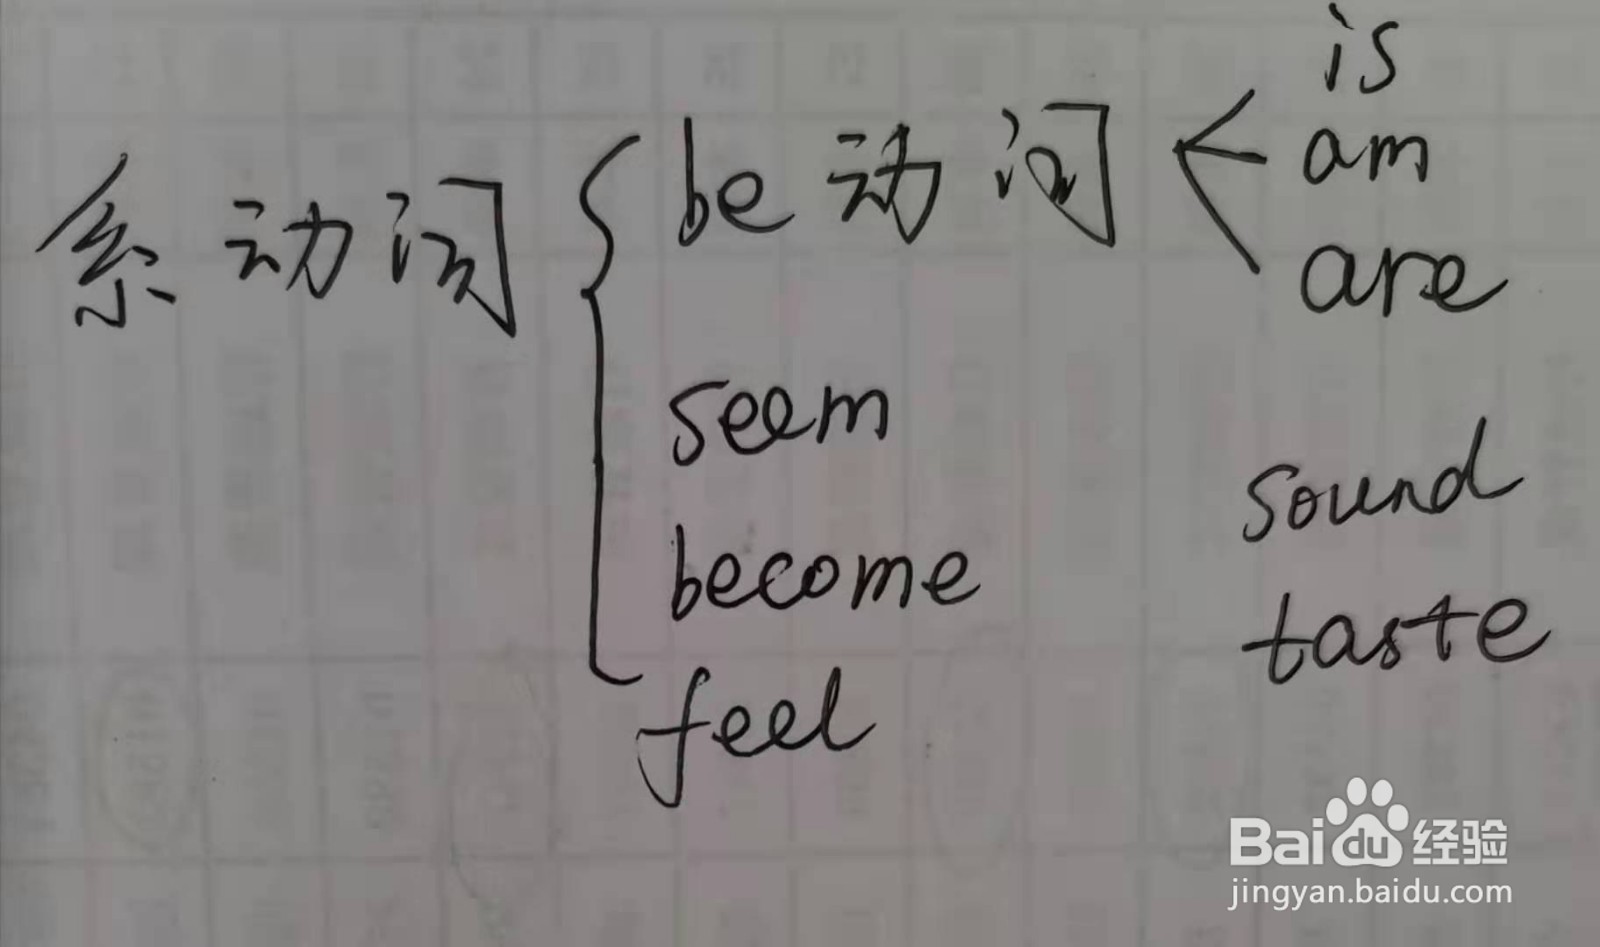 is
系动词 be动词 am
are
seem
sound
become
taste
feel
Baidu经验
jingyan.baidu.com